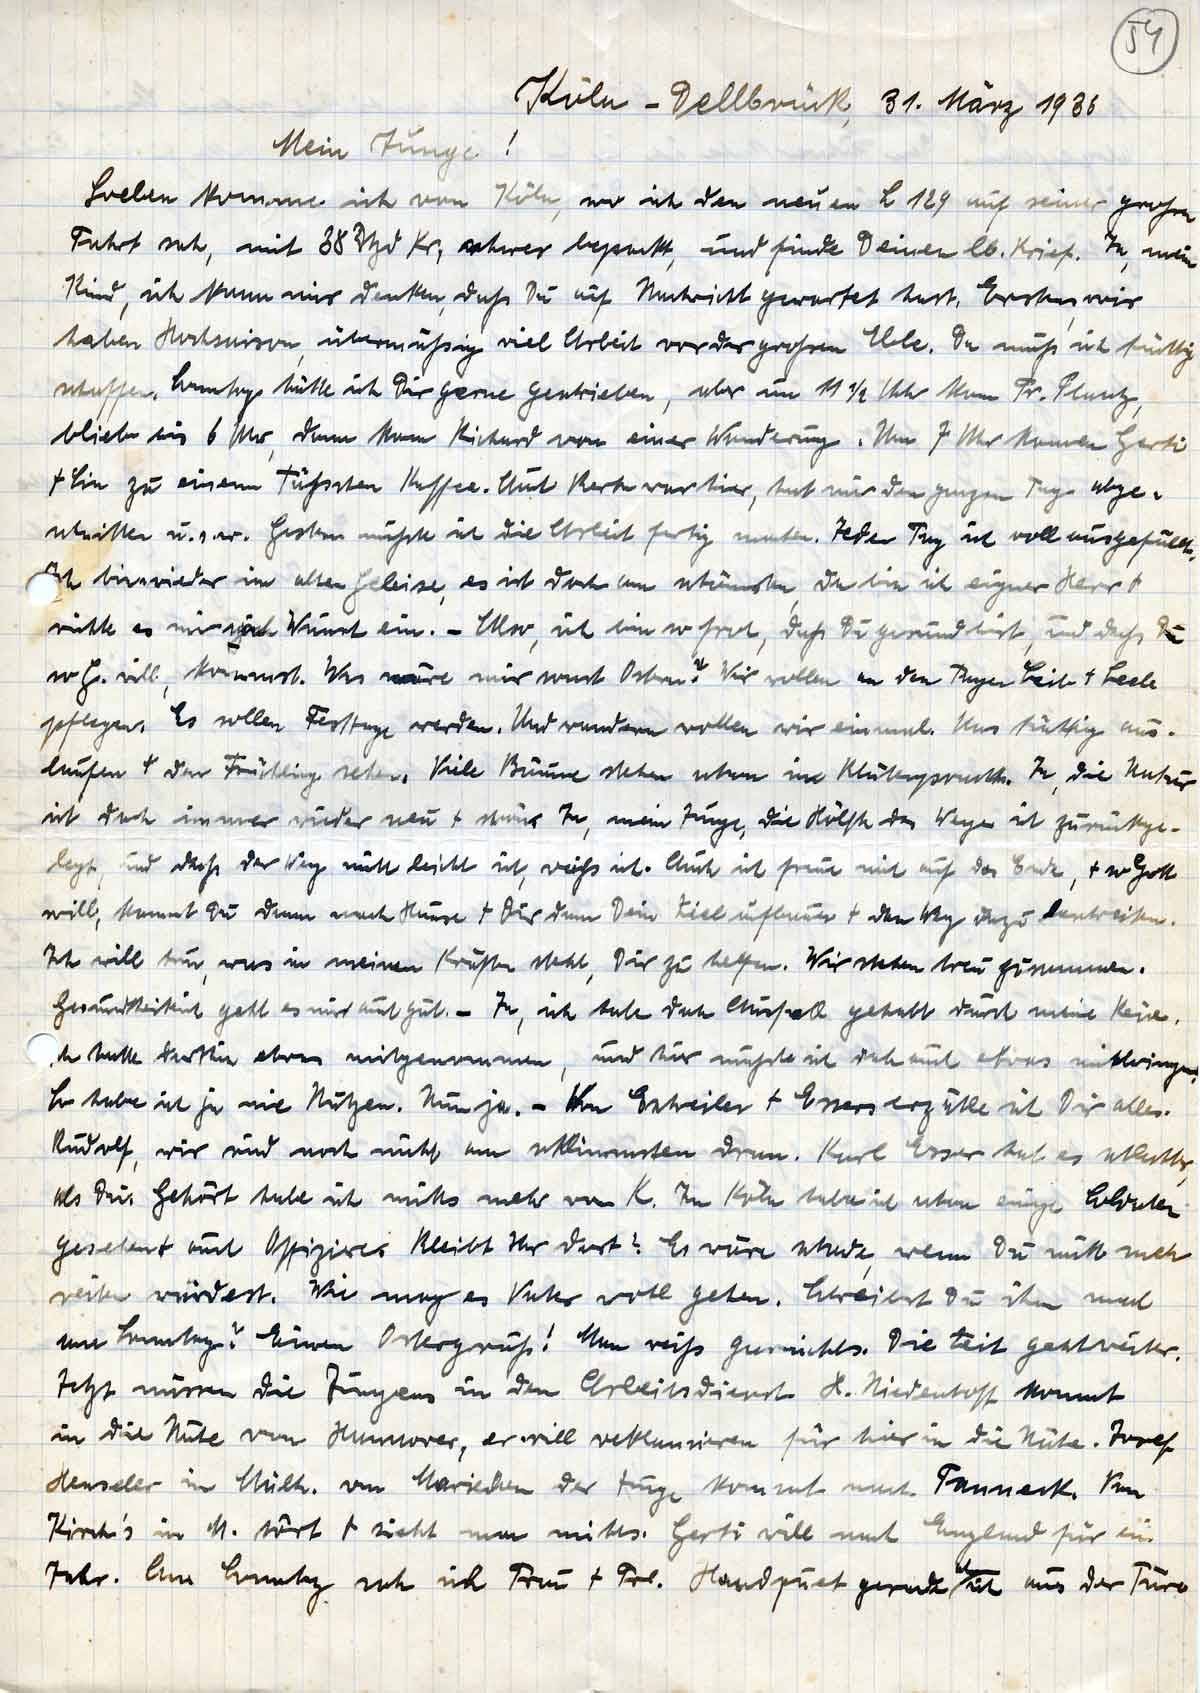 54
Köln - Dellbrück, 31. März 1936
Mein Junge!
Soeben komme ich von Köln, wo ich den neuen L 129 auf seiner großen
Fahrt sah, mit 38 Dtzd Kr, schwer bepackt, und finde Deinen lb. Brief. Ja, mein
Kind, ich kann mir denken, daß Du auf Nachricht gewartet hast. Erstens, wir
haben Hochsaison, übermäßig viel Arbeit vor der großen Ebbe. Da muß ich tüchtig
schaffen. Sonntag hätte ich Dir gerne geschrieben, aber um 11 1/2 Uhr kam Fr.
blieb bis 6 Uhr, dann kam Richard von einer Wanderung. Um 7 Uhr kamen Gerti
+ Sia zu einem Täßchen Kaffee. Auch war hier, hat mir den ganzen Tag abge-
schnitten u.s.w. Gestern mußte ich die Arbeit fertig machen. Jeder Tag ist voll ausgefüllt.
Ich bin wieder im alten Geleise, es ist doch am schönsten, da bin ich eigner Herr +
richte es mir nach Wunsch ein. - Also, ich bin so froh, daß Du gesund bist, und daß Du
so G. will, kommst. Was wäre mir sonst Ostern? Wir wollen an den Tagen Leib + Seele
pflegen. Es sollen Festtage werden. Und wandern wollen wir einmal. Uns tüchtig aus-
laufen + den Frühling sehen. Viele Bäume stehen schon in Blütenpracht. Ja, die Natur
ist doch immer wieder neu + schön. Ja, mein Junge, die Hälfte des Weges ist zurückge-
legt, und daß der Weg nicht leicht ist, weiß ich. Auch ich freue mich auf das Ende, + so Gott
will, kommst Du dann nach Hause + Dir dann Dein Ziel aufbauen + den Weg dazu beschreiten.
Ich will tun, was in meinen Kräften steht, Dir zu helfen. Wir stehen treu zusammen.
Gesundheitlich geht es mir auch gut. - Ja, ich habe doch Ausfall gehabt durch meine Reise.
Ich hatte dorthin etwas mitgenommen, und hier mußte ich doch auch etwas mitbringen.
So habe ich ja nie Nutzen. Nun ja. - Von Eschweiler + Essers erzähle ich Dir alles.
Rudolf, wir sind noch nicht am schlimmsten dran. Karl Esser hat es schlechter,
als Du. Gehört habe ich nichts mehr von K. In Köln habe ich schon einige Soldaten
gesehen + auch Offiziere. Bleibt Ihr dort? Es wäre schade, wenn Du nicht mehr
reiten würdest. Wie mag es Vater wohl gehen. Schreibst Du ihm mal
am Sonntag? Einen Ostergruß! Man weiß gar nichts. Die Zeit geht weiter.
Jetzt müssen die Jungens in den Arbeitsdienst. H. Niedenhoff kommt
in die Nähe von Hannover, er will reklamieren für hier in die Nähe. Josef
Henseler in Mülh. von Mariechen der Junge kommt nach Tanneck. Von
Kirch's in M. hört + sieht man nichts. Gerti will nach England für ein
Jahr. Am Sonntag sah ich Frau + Frl. gerade als ich aus der Türe